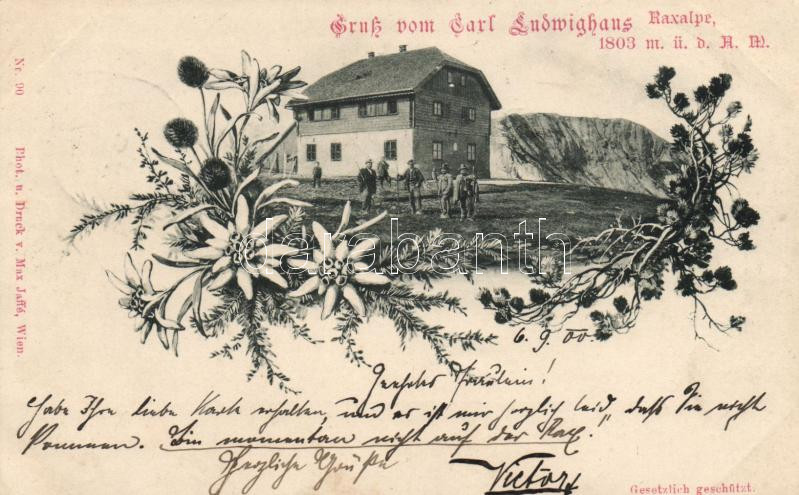 Gruß vom Carl Ludwighaus Raxalpe,
1803 m. ü. d. A. M.
Nr. 90 Phot. u. Druck v. Max Jaffé, Wien.
darabanth
6.9.00
Geehrtes Fräulein!
Habe Ihre liebe Karte erhalten, und es ist mir herzlich leid, daß Sie nicht
kommen. Bin momentan nicht auf der Rax.
Herzliche Grüße
Victor
Gesetzlich geschützt.